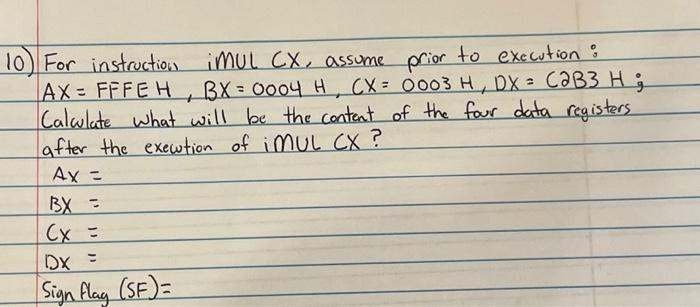 10) For instruction iMUL CX, assume prior to execution :
AX = FFFE H , BX = 0004 H , CX = 0003 H , DX = C2B3 H ;
Calculate what will be the content of the four data registers
after the execution of iMUL CX ?
AX =
BX =
CX =
DX =
Sign flag (SF) =